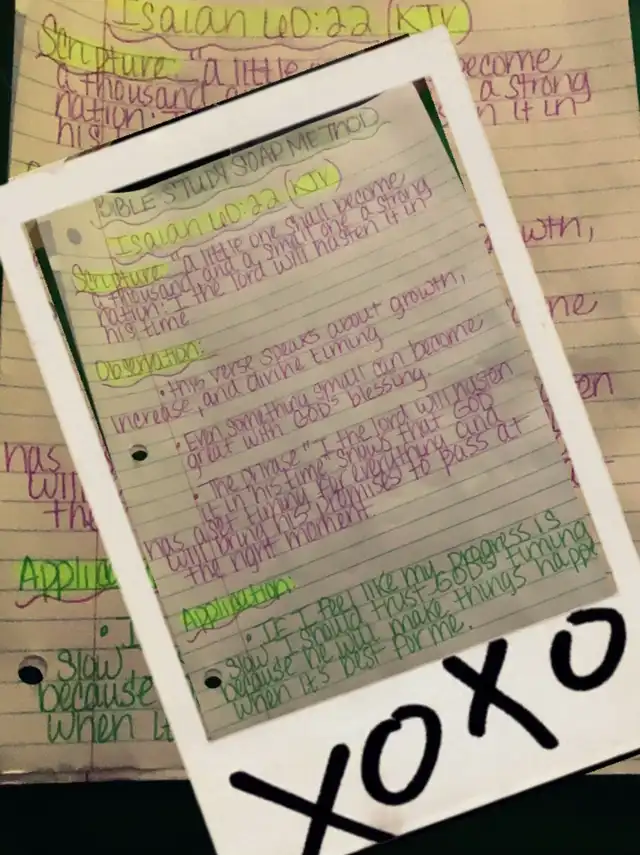 Isaiah 60:22 (KJV)
Scripture "a little
become
a thousand a
a strong
nation: I
n it in
his
BIBLE STUDY SOAP METHOD
Isaiah 60:22 (KJV)
Scripture "a little one shall become
a thousand and a small one a strong
nation: I the lord will hasten it in
his time
Observation:
• this verse speaks about growth,
increase, and divine timing
• Even something small can become
great with GOD's blessing.
• The phrase "I the lord will hasten
it in his time shows that GOD
has a set timing for everything and
will bring his promises to pass at
the right moment.
Application:
• IF I feel like my progress is
slow I should trust GOD timing
because he will make things happe
when it's best for me.
wth,
me
has
will
the
Applica
• I
slow
because
when it
XOXO